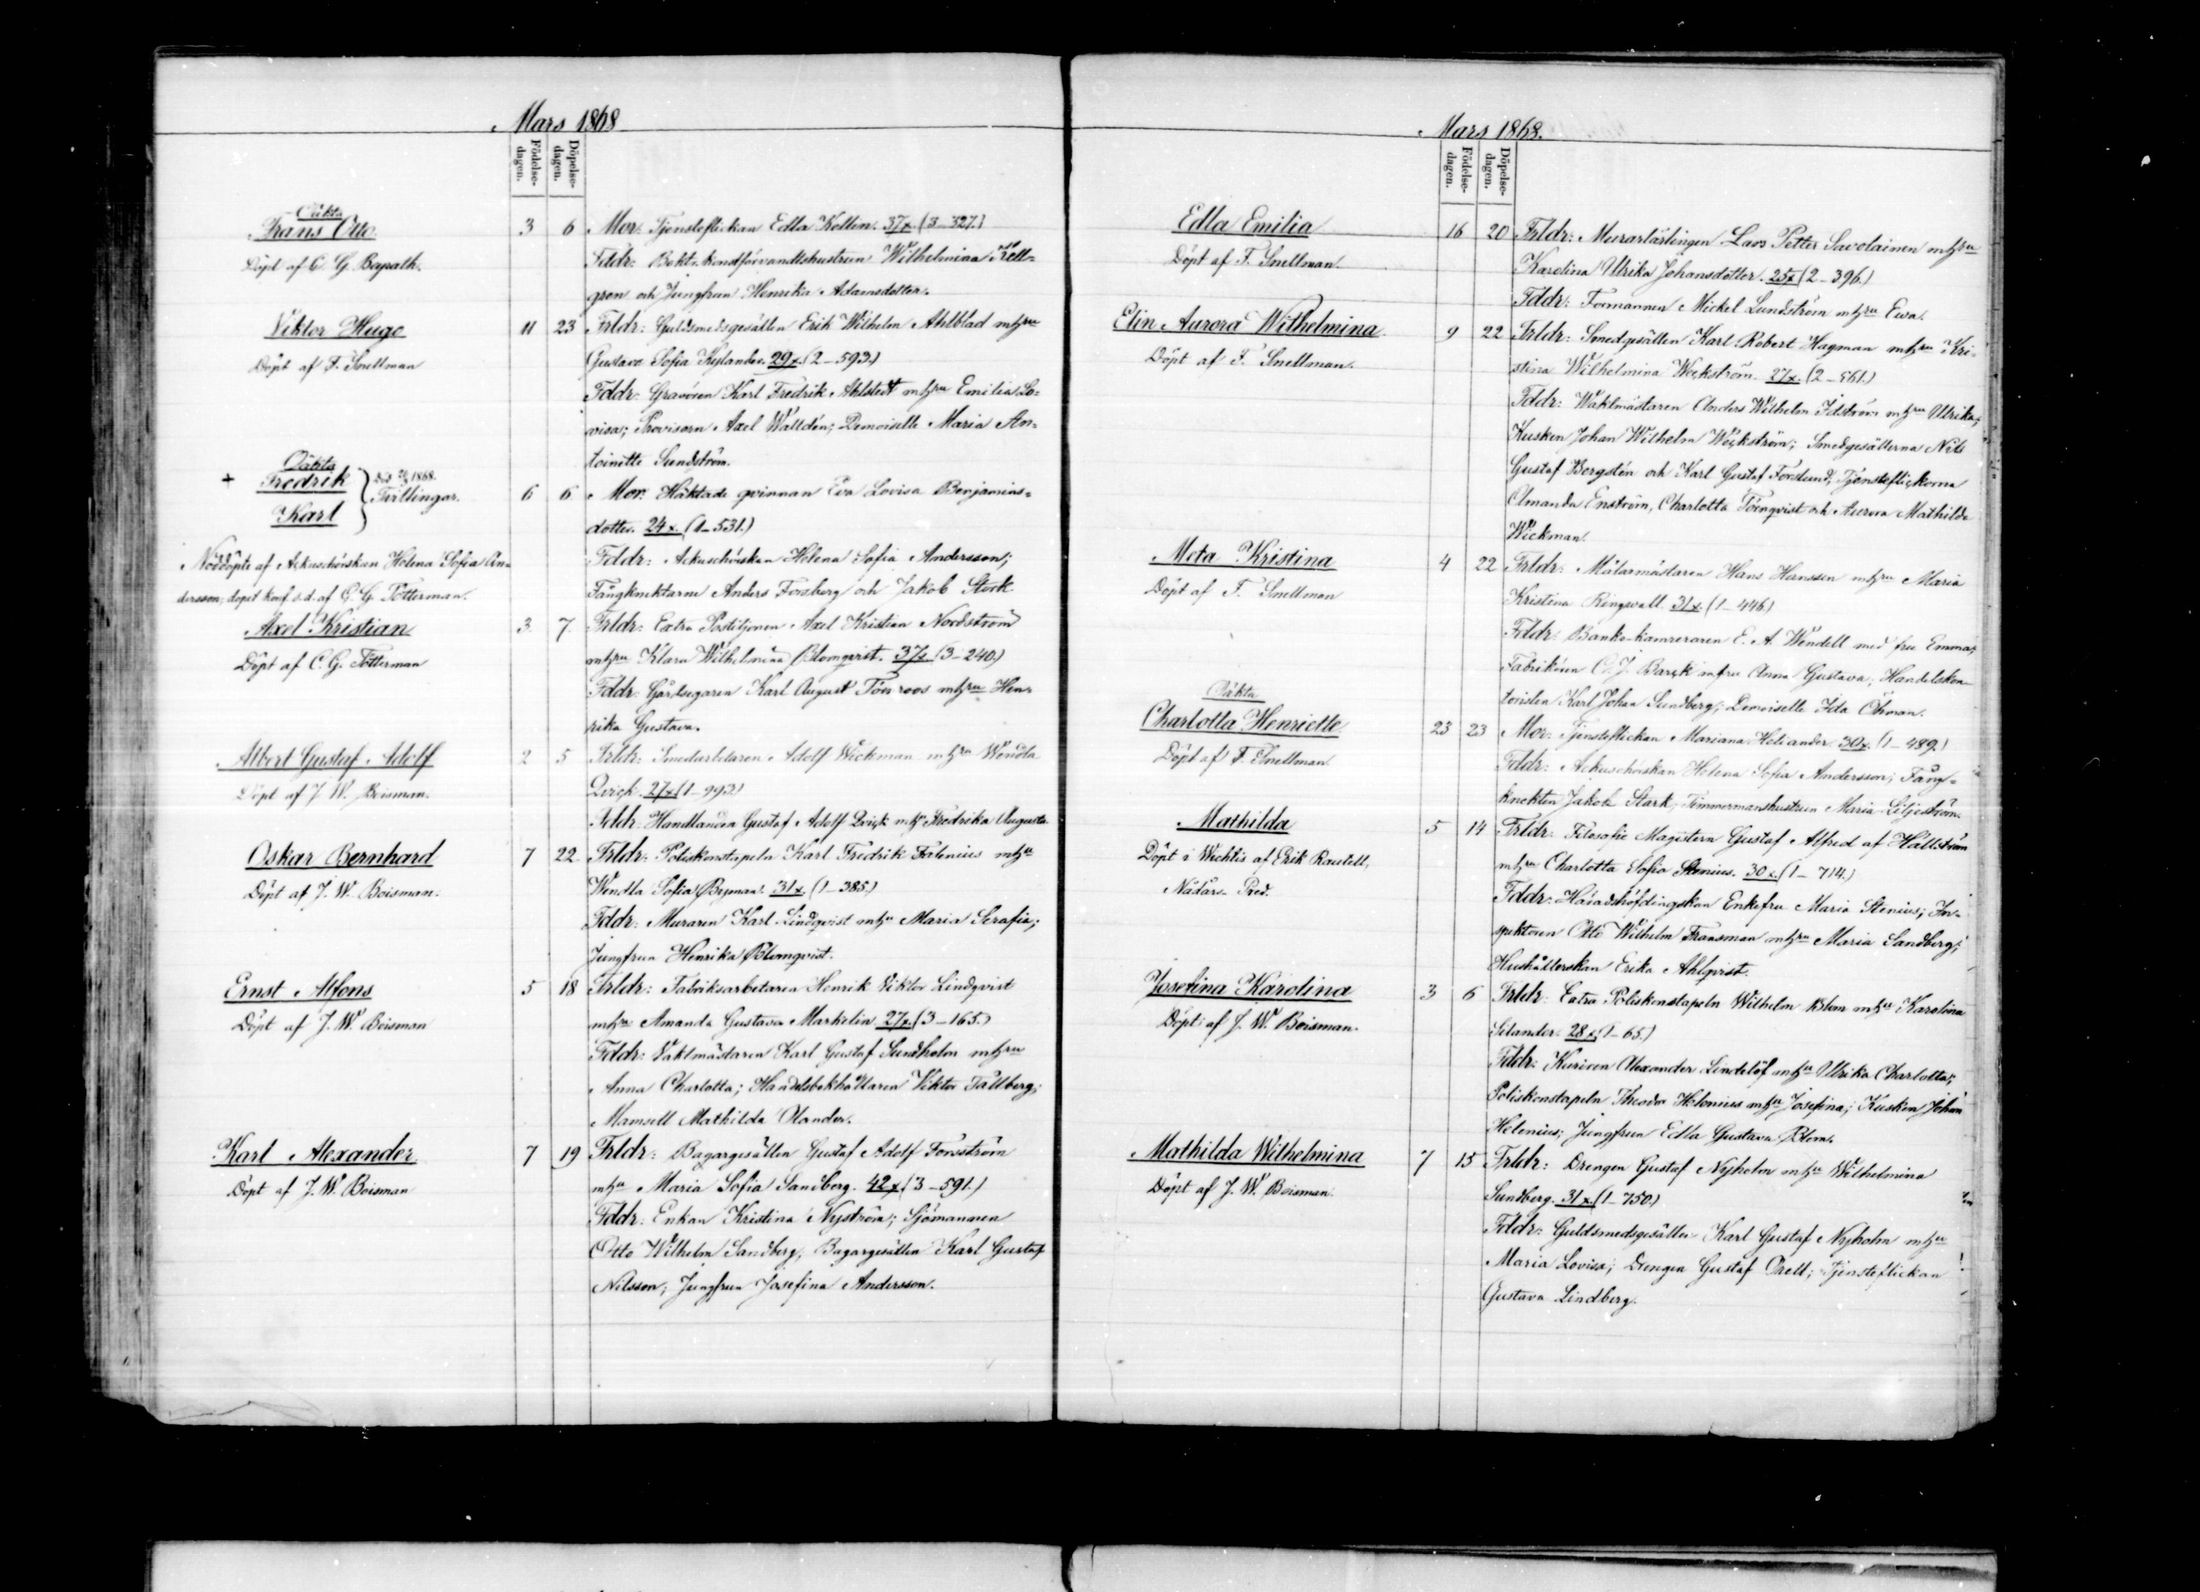 Mars 1868
Födelse-
dagen.
Döpelse-
dagen.
Oäkta
Frans Otto
Döpt af C. G.
3 6 Mor: Tjensteflickan Edla 37 x. (3-327.)
Fddr: Bokt. konstförvandtshustrun Wilhelmina Käll-
gren och Jungfrun Henrika Adamsdotter.
Viktor Hugo
Döpt af F. Snellman
11 23 Frldr: Guldsmedsgesällen Erik Wilhelm Ahlblad mhru
Gustava Sofia Kylander. 29 x. (2-593.)
Fddr: Gravören Karl Fredrik Ahlstedt mhru Emilia Lo-
visa; Provisorn Axel Walldén; Demoiselle Maria An-
toinette Sundström.
Oäkta
+ Fredrik
Karl
1868.
Tvillingar.
Nöddöpte af Ackuschörskan Helena Sofia An-
dersson; dopet konf. s. d. af C. G. Tötterman.
6 6 Mor: Häktade qvinnan Eva Lovisa Benjamins-
dotter. 24 x. (1-531.)
Fddr: Ackuschörskan Helena Sofia Andersson;
Fångknektarne Anders Forsberg och Jakob Stark
Axel Kristian
Döpt af C. G. Tötterman
3 7 Frldr: Extra Postiljonen Axel Kristian Nordström
mhru Klara Wilhelmina Blomqvist. 37 x. (3-240.)
Fddr: Gårdsegaren Karl August Törnroos mhru Hen-
rika Gustava.
Albert Gustaf Adolf
Döpt af J. W. Boisman.
2 5 Frldr: Smedarbetaren Adolf Wickman mhru Wendla
Qvick. 27 x. (1-993.)
Fddr: Handlanden Gustaf Adolf Qvick mhru Fredrika Augusta
Oskar Bernhard
Döpt af J. W. Boisman.
7 22 Frldr: Poliskonstapeln Karl Fredrik Falenius mhru
Wendla Sofia Byman. 31 x. (1-385.)
Fddr: Muraren Karl Lindqvist mhru Maria Serafia;
Jungfrun Henrika Blomqvist.
Ernst Alfons
Döpt af J. W. Boisman
5 18 Frldr: Fabriksarbetaren Henrik Viktor Lindqvist
mhru Amanda Gustava Markelin 27 x. (3-165.)
Fddr: Vaktmästaren Karl Gustaf Sundholm mhru
Anna Charlotta; Handelsbokhållaren Viktor Tallberg;
Mamsell Mathilda Olander.
Karl Alexander
Döpt af J. W. Boisman
7 19 Frldr: Bagargesällen Gustaf Adolf Forsström
mhru Maria Sofia Sandberg. 42 x. (3-591.)
Fddr: Enkan Kristina Nyström; Sjömannen
Otto Wilhelm Sandberg; Bagargesällen Karl Gustaf
Nilsson; Jungfrun Josefina Andersson.
Mars 1868.
Födelse-
dagen.
Döpelse-
dagen.
Edla Emilia
Döpt af F. Snellman.
16 20 Frldr: Murarlärlingen Lars Petter Savolainen mhru
Karolina Ulrika Johansdotter. 25 x. (2-396.)
Fddr: Formannen Mickel Lundström mhru Ewa.
Elin Aurora Wilhelmina
Döpt af F. Snellman.
9 22 Frldr: Smedgesällen Karl Robert Hagman mhru Kri-
stina Wilhelmina Weckström. 27 x. (2-561.)
Fddr: Waktmästaren Anders Wilhelm Idström mhru Ulrika;
Kusken Johan Wilhelm Weckström; Smedgesällerna Nils
Gustaf Bergsten och Karl Gustaf Forslund; Tjensteflickorna
Amanda Enström, Charlotta Törnqvist och Aurora Mathilda
Wickman.
Meta Kristina
Döpt af F. Snellman
4 22 Frldr: Målarmästaren Hans Hanssen mhru Maria
Kristina Ringwall. 31 x. (1-446)
Fddr: Banko-kamreraren E. A. Wendell med fru Emma;
Fabrikören C. J. Barck mfru Anna Gustava; Handelskon-
toristen Karl Johan Sundberg; Demoiselle Ida Öhman.
Oäkta
Charlotta Henriette
Döpt af F. Snellman
23 23 Mor: Tjensteflickan Mariana Heliander. 30 x. (1-489.)
Fddr: Ackuschörskan Helena Sofia Andersson; Fång-
knekten Jakob Stark; Timmermanshustrun Maria Liljeström.
Mathilda
Döpt i Wichtis af Erik
Nådårs- Pred.
5 14 Frldr: Filosofie Magistern Gustaf Alfred af Hällström
mhru Charlotta Sofia Stenius. 30 x. (1-714.)
Fddr: Häradshöfdingskan Enkefru Maria Stenius; In-
spektoren Otto Wilhelm Fransman mhru Maria Sandberg;
Hushållerskan Erika Ahlqvist.
Josefina Karolina
Döpt af J. W. Boisman.
3 6 Frldr: Extra Poliskonstapeln Wilhelm Blom mhru Karolina
Silander. 28 x. (1-65.)
Fddr: Alexander Lindelöf mhru Ulrika Charlotta;
Poliskonstapeln Theodor Helenius mhru Josefina; Kusken Johan
Helenius; Jungfrun Edla Gustava Blom.
Mathilda Wilhelmina
Döpt af J. W. Boisman.
7 15 Frldr: Drengen Gustaf Nyholm mhru Wilhelmina
Sundberg. 31 x. (1-750.)
Fddr: Guldsmedsgesällen Karl Gustaf Nyholm mhru
Maria Lovisa; Drengen Gustaf Orell; Tjensteflickan
Gustava Lindberg.